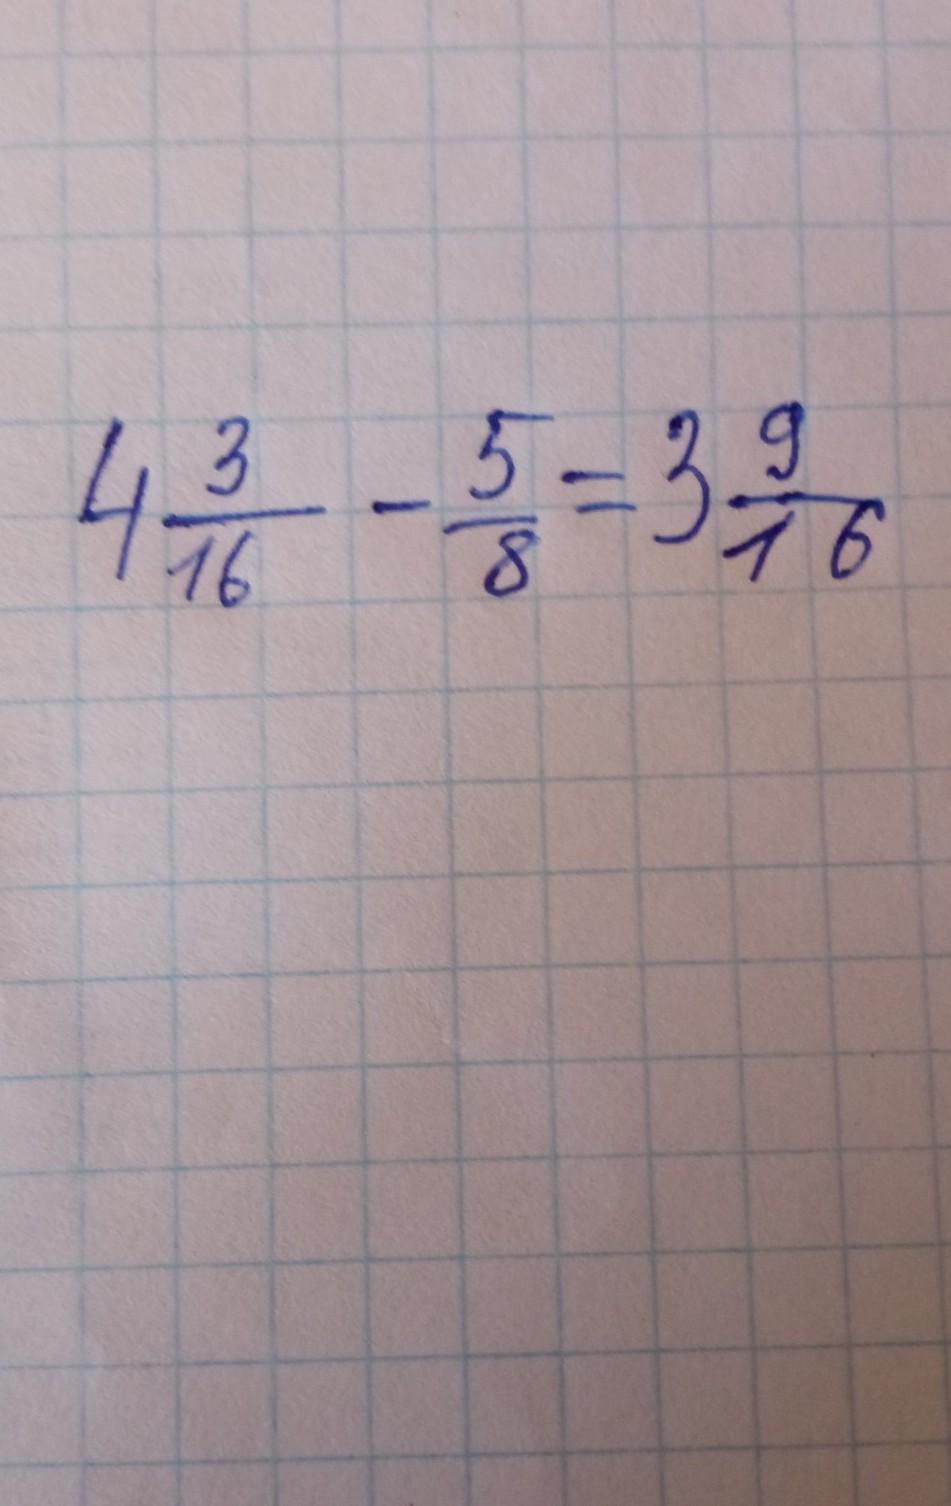 4 3/16 - 5/8 = 3 9/16